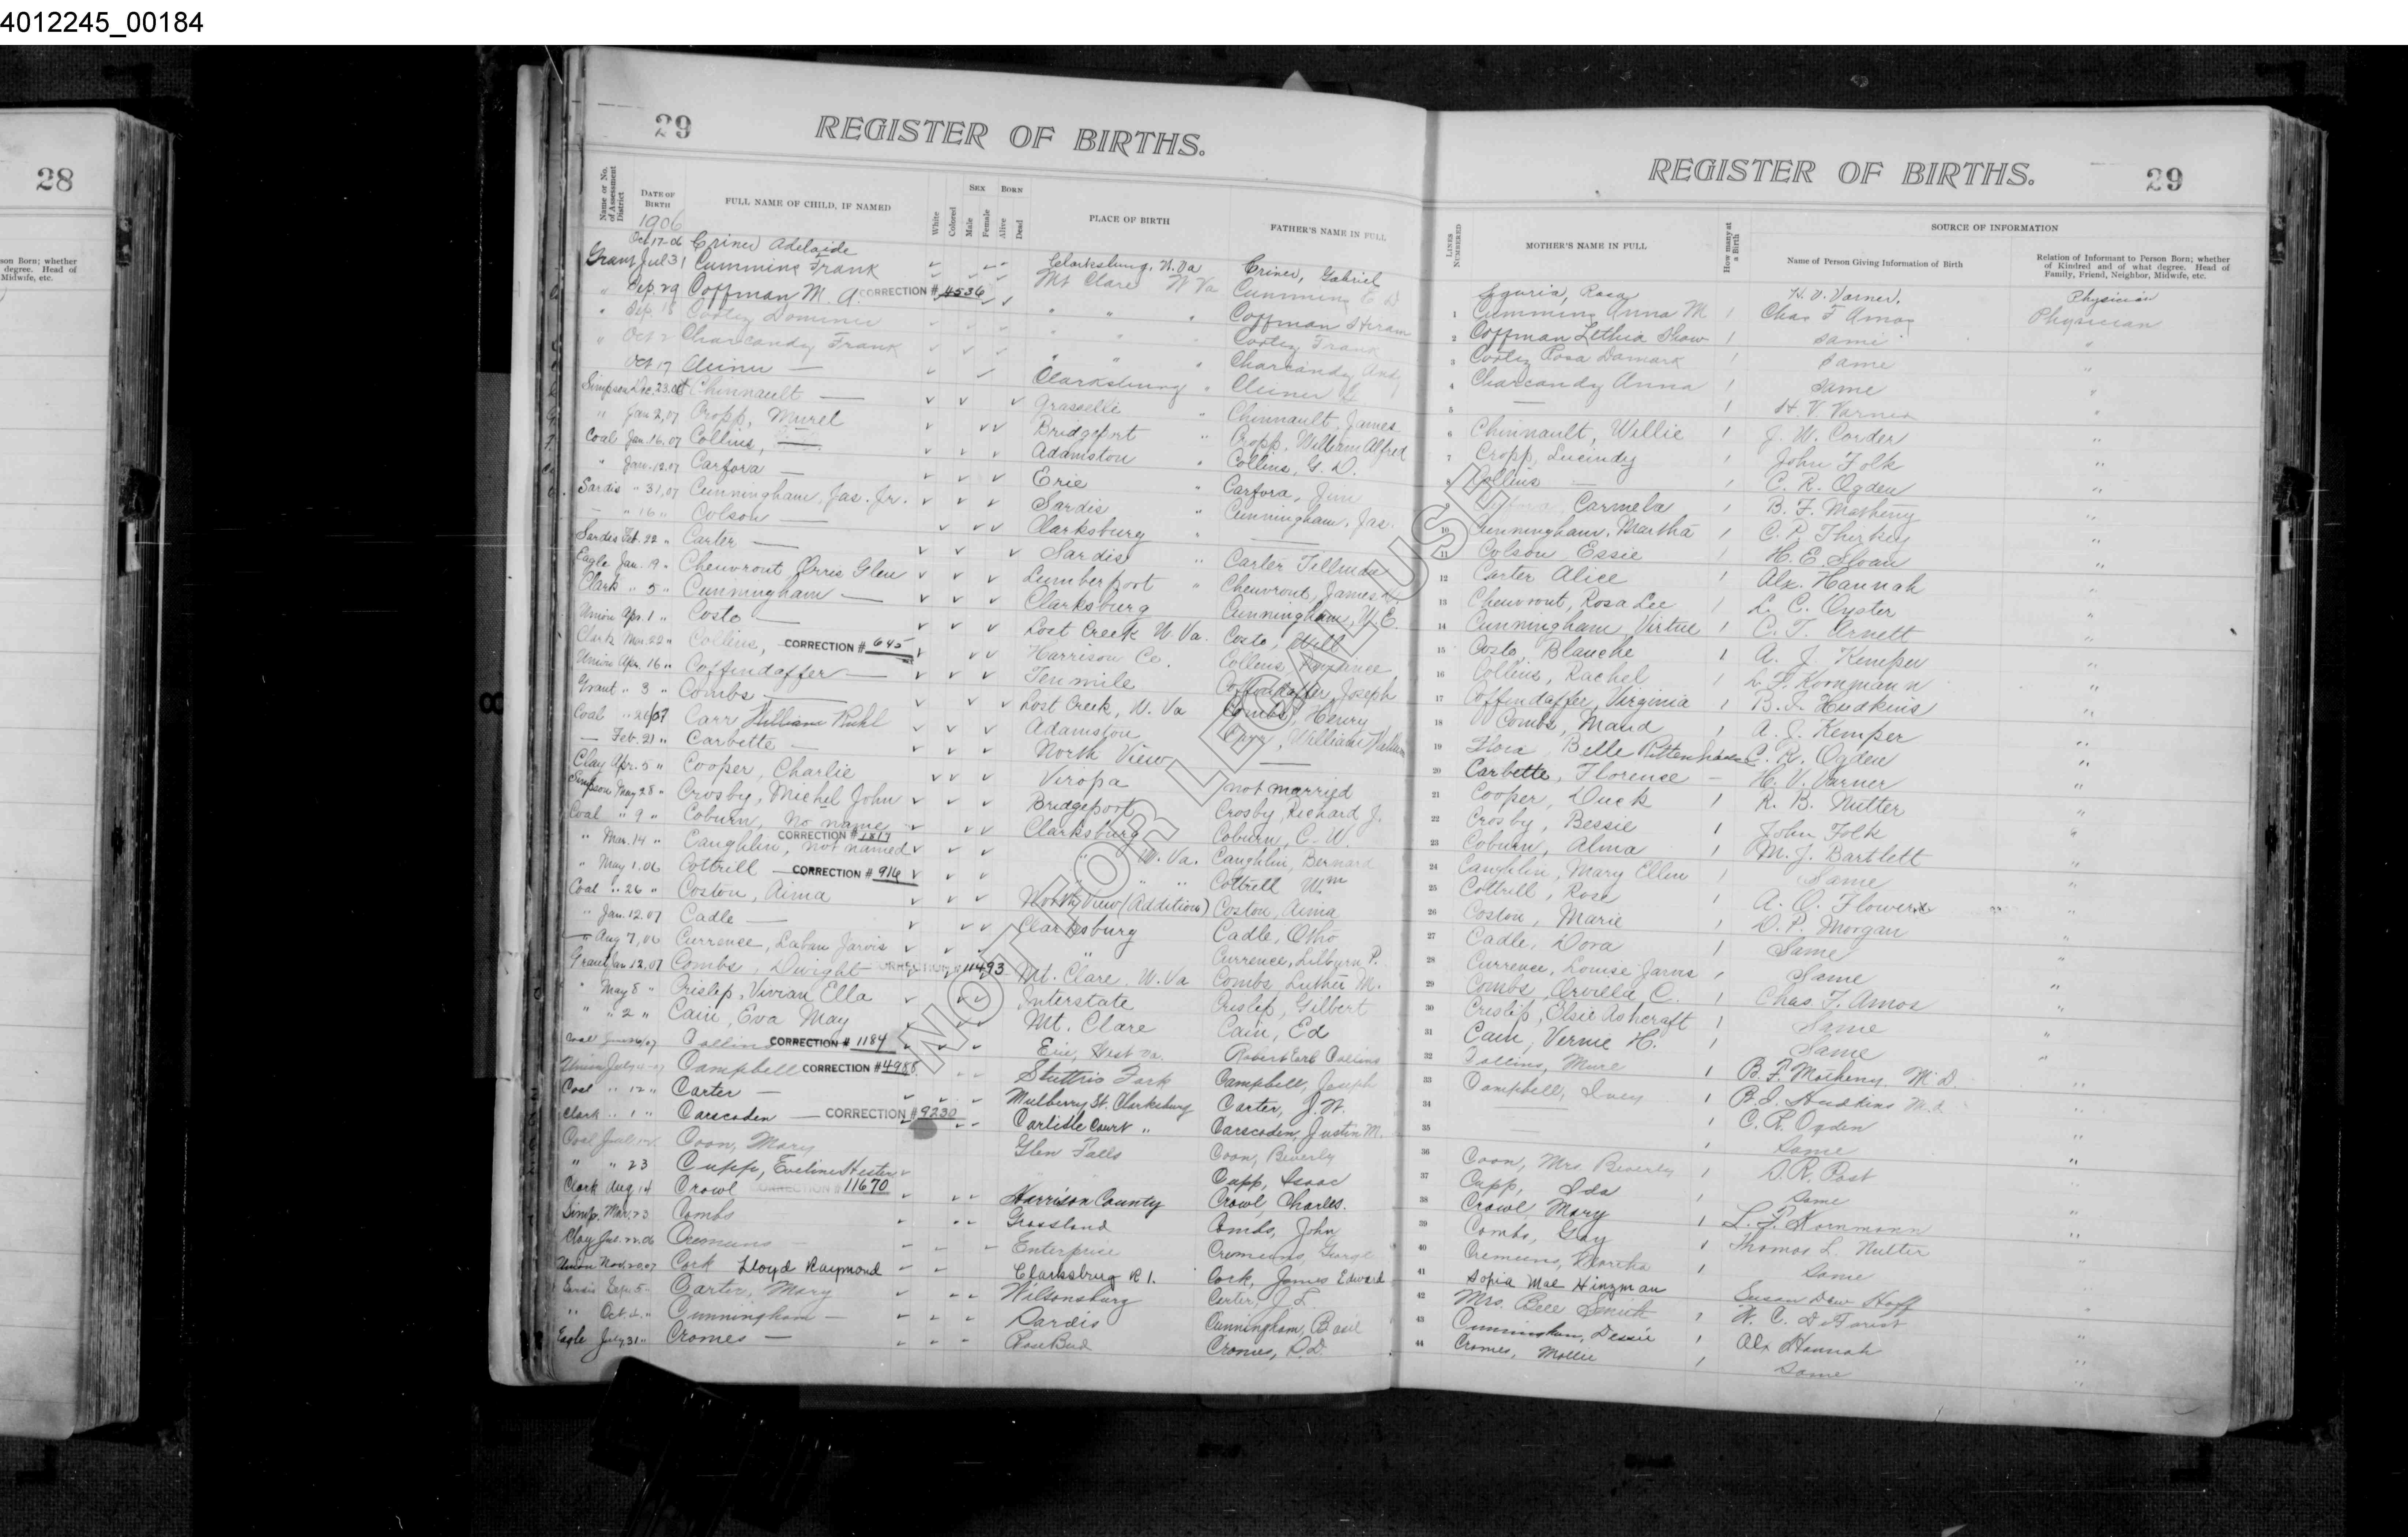 4012245_00184
28
son Born; whether
degree. Head of
Midwife, etc.
29 REGISTER OF BIRTHS.
REGISTER OF BIRTHS. 29
Name or No. of Assessment District
DATE OF BIRTH
FULL NAME OF CHILD, IF NAMED
White Colored
SEX Male Female
BORN Alive Dead
PLACE OF BIRTH
FATHER'S NAME IN FULL
LINES NUMBERED
MOTHER'S NAME IN FULL
How many at a Birth
SOURCE OF INFORMATION
Name of Person Giving Information of Birth
Relation of Informant to Person Born; whether of Kindred and of what degree. Head of Family, Friend, Neighbor, Midwife, etc.
1906
Oct 17-06 Criner Adelaide Clarksburg, W. Va Criner, Gabriel Rosa H. V. Varner. Physician
Grant Jul 31 Cummins Frank Mt Clare W Va Cummins 1 Cummins Anna M 1 Chas F Amos Physician
" Sep 29 Coffman M. A. CORRECTION # 4536 " " " Coffman Hiram 2 Coffman Lethia Shaw 1 Same "
" Sep Frank 3 Rosa 1 Same "
" Oct 2 Charcandy Frank " " " Charcandy Andy 4 Charcandy Anna 1 Same "
Oct 17 Clarksburg " 5 — 1 H. V. Varner "
Simpson Dec. 23.06 Chinnault — Grasselli " Chinnault, James 6 Chinnault, Willie 1 J. W. Corder "
" Jan 2, 07 Cropp, Murel Bridgeport " Cropp, William Alfred 7 Cropp, Lucindy 1 John Folk "
Coal Jan. 16. 07 Collins, — Adamston " Collins, G. D. 8 Collins — 1 C. R. Ogden "
" Jan. 12. 07 Carfora — Erie " Carfora, Jim 9 Carmela 1 B. F. Matheny "
Sardis " 31, 07 Cunningham, Jas. Jr. Sardis " Cunningham, Jas. 10 Cunningham, Martha 1 C. P. "
— " 16 " Colson — Clarksburg " — 11 Colson Essie 1 H. E. Sloan "
Sardis Feb. 22 " Carter — Sardis " Carter 12 Carter Alice 1 Alx. Hannah "
Eagle Jan. 19 " Cheuvront Orris Glen Lumberport " Cheuvront, James 13 Cheuvront, Rosa Lee 1 L. C. Oyster "
Clark " 5 " Cunningham — Clarksburg Cunningham, W. E. 14 Cunningham, Virtue 1 C. T. Arnett "
Union Apr. 1 " Costo — Lost Creek W. Va. Costo, Will 15 Costo, Blanche 1 A. J. Kemper "
Clark Mar. 22 " Collins, CORRECTION # 645 Harrison Co. Collens 16 Collins, Rachel 1 L. F. Kornmann "
Union Apr. 16 " Coffindaffer — Tenmile Coffindaffer, Joseph 17 Coffindaffer, Virginia 1 B. I. Hudkins "
Grant " 3 " Combs — Lost Creek, W. Va Combs, Henry 18 Combs, Maud 1 A. J. Kemper "
Coal " 26/07 Carr William Ruhl Adamston Carr, William 19 Flora Belle Rittenhouse C. R. Ogden "
— Feb. 21 " Carbette — North View — 20 Carbette, Florence — H. V. Varner "
Clay Apr. 5 " Cooper, Charlie Viropa not married 21 Cooper, Duck 1 R. B. Nutter "
Simpson May 28 " Crosby, Michel John Bridgeport Crosby, Richard J. 22 Crosby, Bessie 1 John Folk "
Coal " 9 " Coburn, no name Clarksburg Coburn, C. W. 23 Coburn, Alma 1 M. J. Bartlett "
" Mar. 14 " Caughlin, not named CORRECTION # 1817 " W. Va. Caughlin, Bernard 24 Caughlin, Mary Ellen 1 Same "
" May 1. 06 Cottrill — CORRECTION # 916 " " " Cottrell Wm 25 Cottrill, Rose 1 A. O. Flowers "
Coal " 26 " Coston, Aima North View (Addition) Coston, Aima 26 Coston, Marie 1 D. P. Morgan "
" Jan. 12. 07 Cadle — Clarksburg Cadle, Otho 27 Cadle, Dora 1 Same "
— Aug 7, 06 Currence, Laban Jarvis " Currence, Lilburn P. 28 Currence, Louise Jarvis 1 Same "
Grant Jan 12, 07 Combs, Dwight CORRECTION # 11493 Mt. Clare, W. Va Combs, Luther M. 29 Combs, Orvilla C. 1 Chas. F. Amos "
" May 8 " Crislip, Vivian Ella Interstate Crislip, Gilbert 30 Crislip, Elsie Ashcraft 1 Same "
" " 2 " Cain, Eva May Mt. Clare Cain, Ed 31 Cain, Vernie H. 1 Same "
Coal Collins CORRECTION # 1184 Erie, West Va. Robert Earl Collins 32 Collins, 1 B. F. Matheny M D "
Union July Campbell CORRECTION # 4988 Fork Campbell, Joseph 33 Campbell, Ivey 1 B. I. Hudkins M. D. "
Coal " 12 " Carter — Mulberry St. Clarksburg Carter, J. W. 34 — 1 C. R. Ogden
Clark " 1 " Carscaden — CORRECTION # 9230 Carlisle Court " Carscaden, Justin M. 35 1 Same "
Coal Coon, Mary Glen Falls Coon, Beverly 36 Coon, Mrs. Beverly 1 D. R. Post "
" " 23 Cupp, Eveline Hester Cupp, Isaac 37 Cupp, Ida 1 Same
Clark Aug 14 Crowl CORRECTION # 11670 Harrison County Crowl, Charles. 38 Crowl Mary 1 L. F. Kornmann "
Simp. Mar. 23 Combs Grassland Combs, John 39 Combs, Gay 1 Thomas L. Nutter "
Clay Enterprise George 40 1 Same
Union Nov. 20. 07 Cork Lloyd Raymond Clarksburg R 1. Cork, James Edward 41 Sopia Mae Hinzman Susan Dew Hoff
Sardis Sept. 5 Carter, Mary Wilsonsburg Carter, J. L. 42 Mrs. Bell Smith 1 "
" Oct. Cunningham — Sardis Cunningham, Basil 43 Cunningham, Dessie 1 Alx Hannah "
Eagle July 31 " Cromes — Rose Bud Cromes, 44 Cromes, Mollie 1 Same "
NOT FOR LEGAL USE